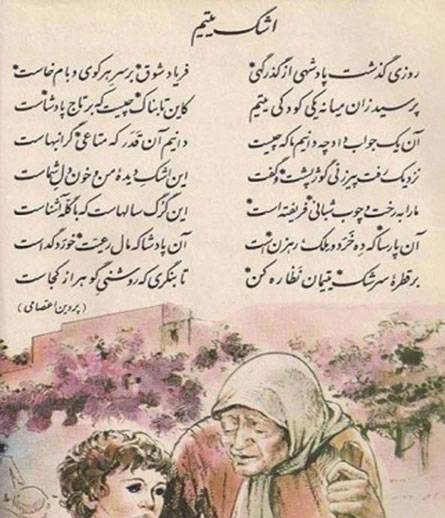 اشک یتیم
روزی گذشت پادشهی از گذرگهی فریاد شوق بر سر هر کوی و بام خاست
پرسید زان میانه یکی کودکی یتیم کاین تابناک چیست که بر تاج پادشاست
آن یک جواب داد چه دانیم ما که چیست دانیم آن قَدَر که متاعی گرانبهاست
نزدیک رفت پیرزنی گوژپشت و گفت این اشک دیدهٔ من و خون دل شماست
ما را به رخت و چوب شبانی فریفته است این گرگ سالهاست که با گلّه آشناست
آن پارسا که ده خَرَد و مِلک، رهزن است آن پادشا که مال رعیّت خورَد گداست
بر قطرهٔ سرشک یتیمان نظاره کن تا بنگری که روشنی گوهر از کجاست
(پروین اعتصامی)